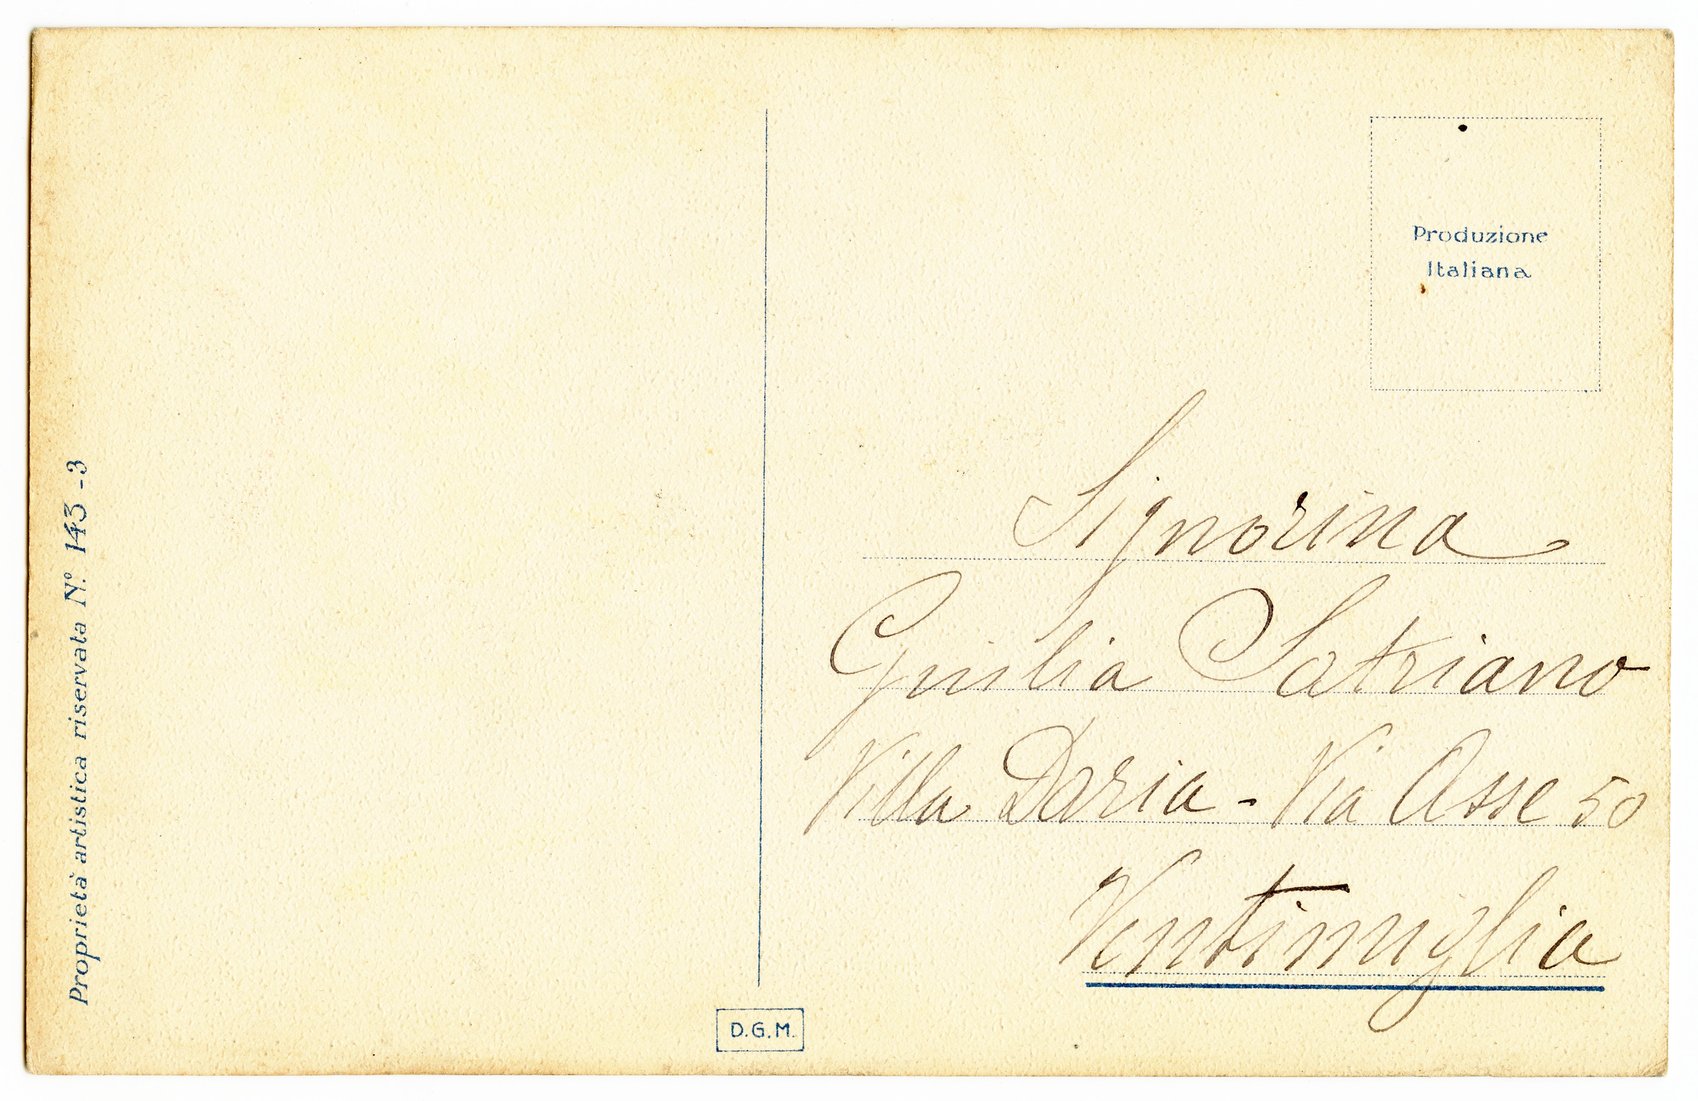 Proprietà artistica riservata N.° 143-3
Produzione
Italiana
Signorina
Giulia Satriano
Villa Daria - Via Asse 50
Ventimiglia
D.G.M.